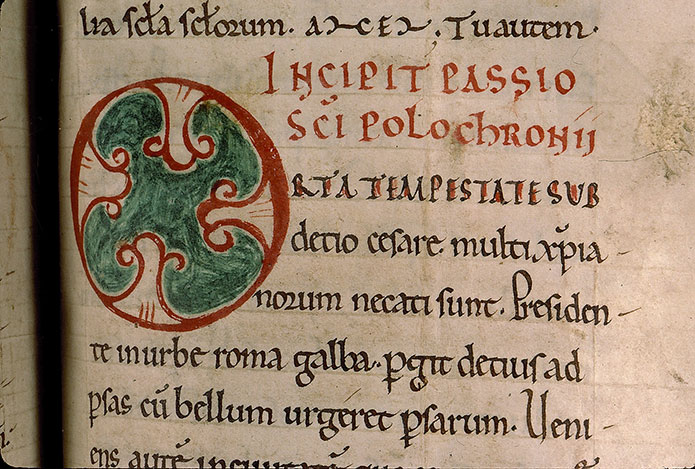 lia scła scłorum. AꝫCEꝫ. Tu autem.
INCIPIT PASSIO
SC̄I POLOCHRONII
ORTA TEMPESTATE SUB
detio cesare. multi xp̄ia-
norum necati sunt. Presiden-
te in urbe roma galba. ꝑgit detius ad
ꝑsas cū bellum urgeret ꝑsarum. Veni-
ens autē in